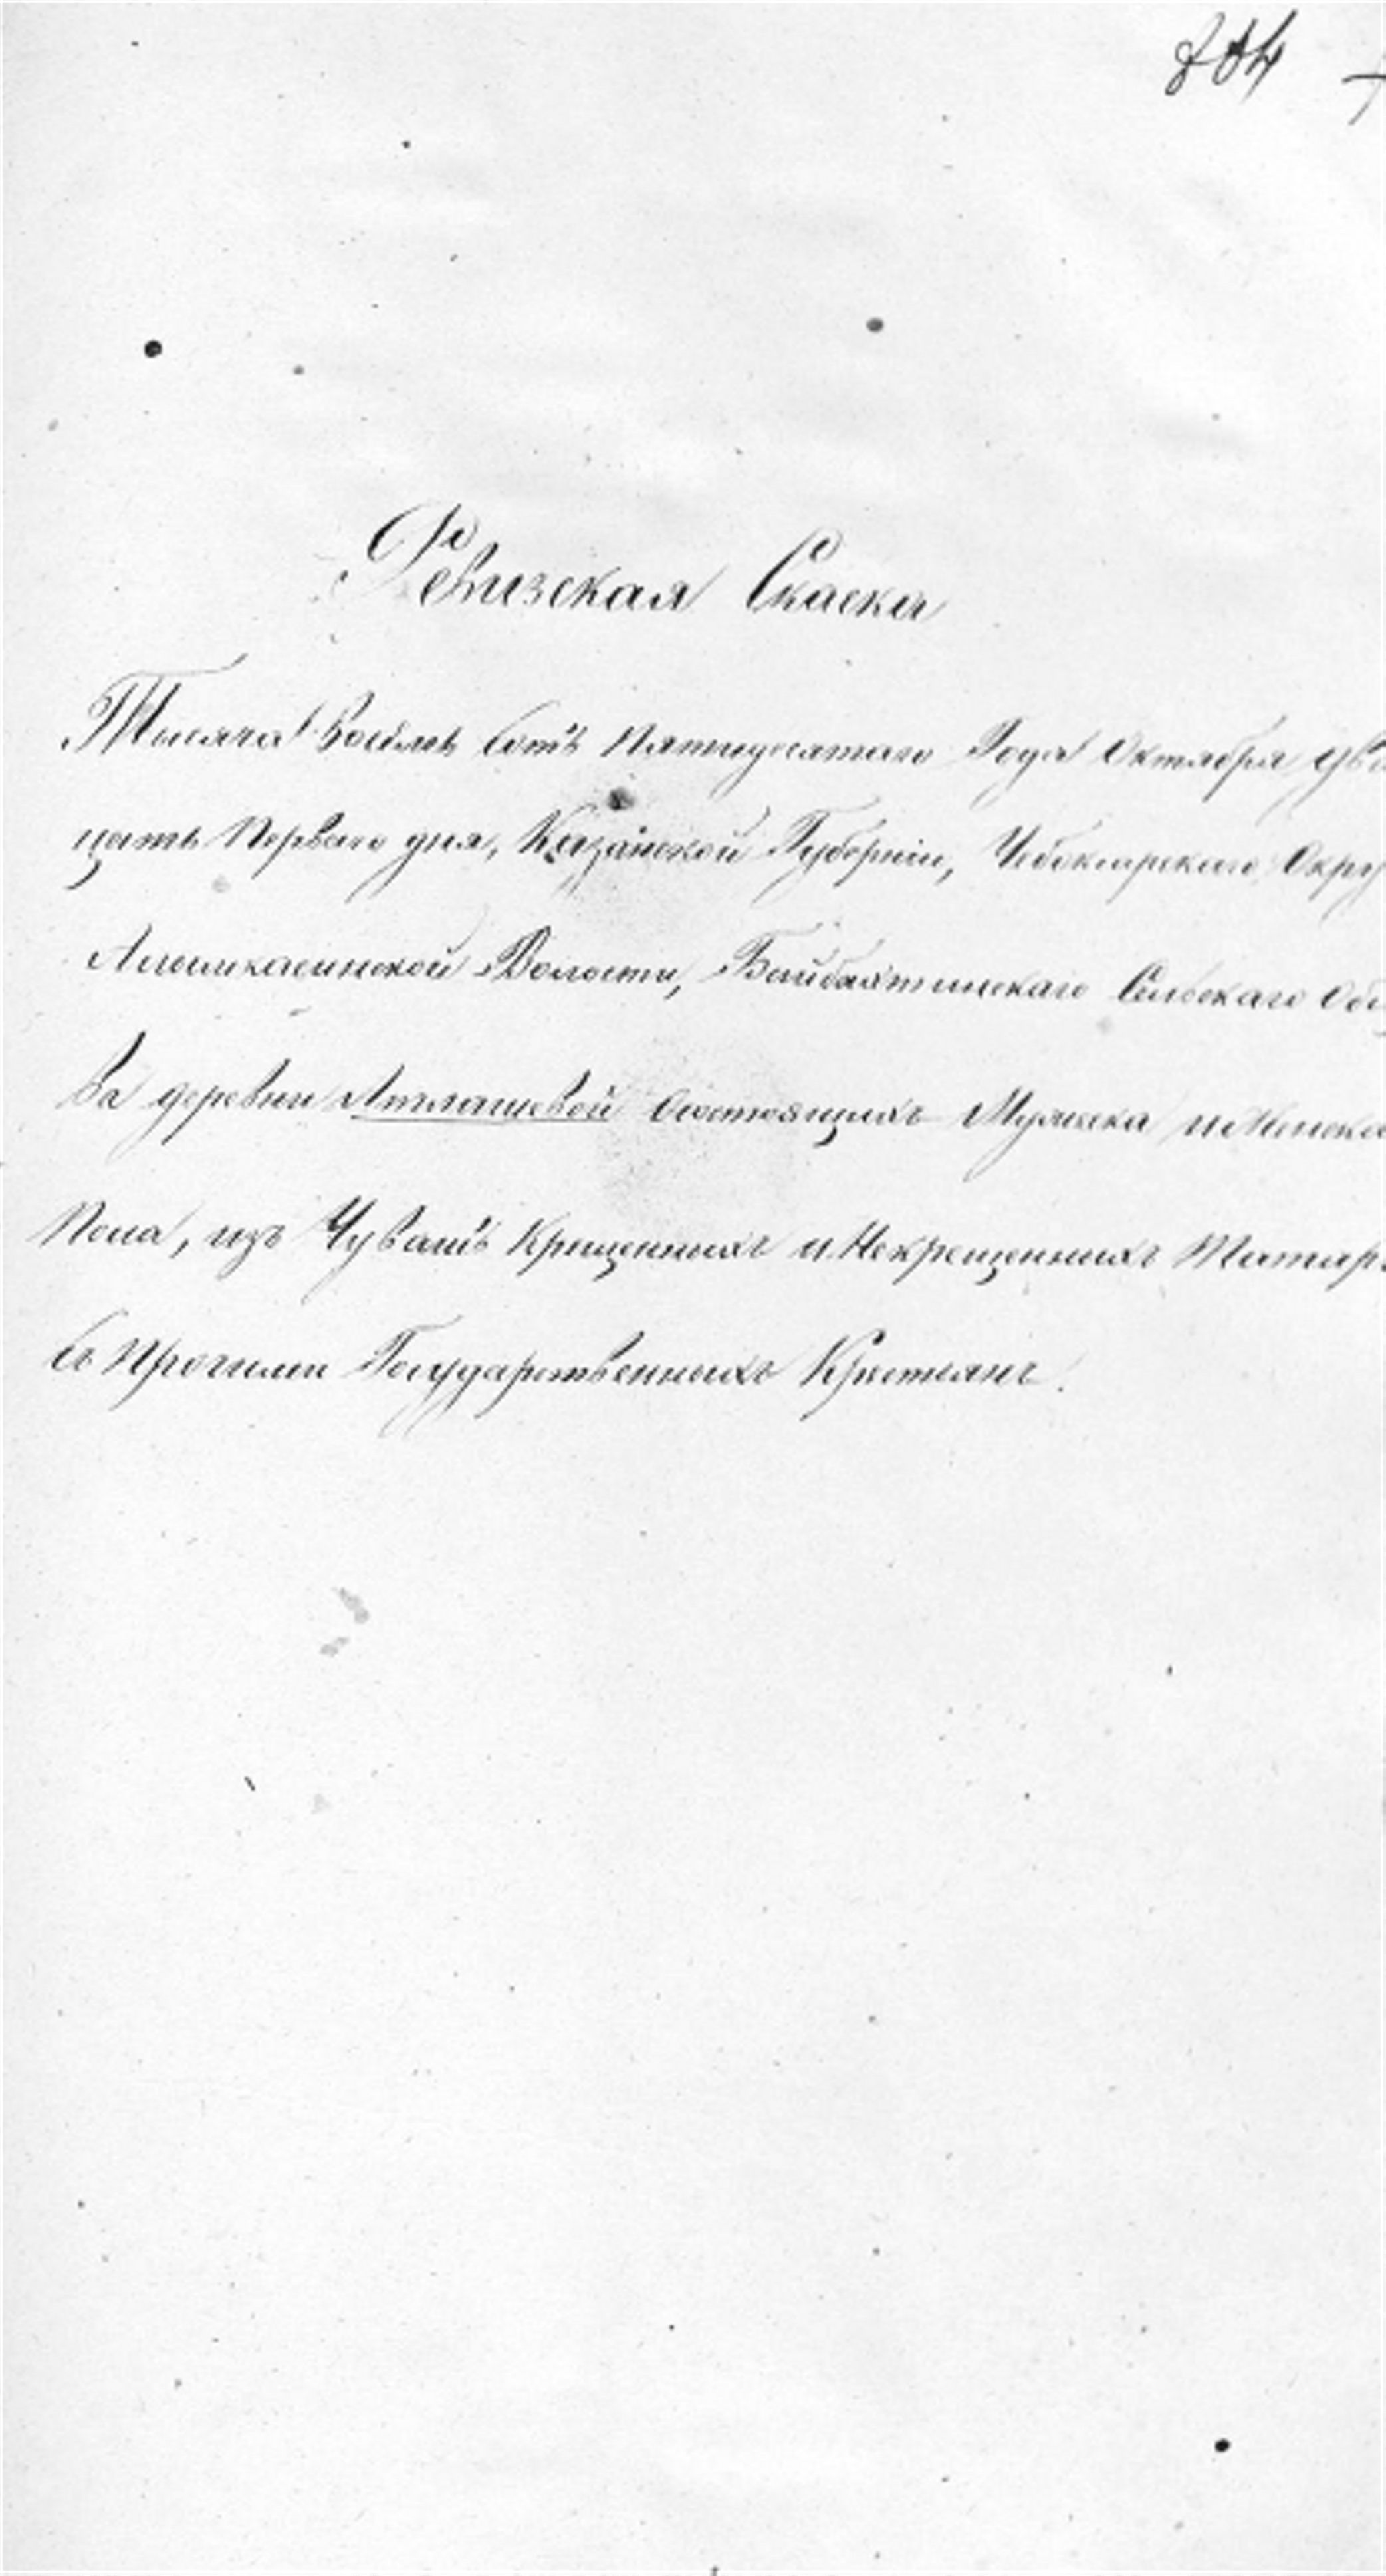 Ревизская Скаска
Тысяча Восемь Сотъ Пятидесятаго Года Октября два
цать Перваго дня, Казанской Губерніи, Чебоксарскаго Окру
Алымкасинской Волости, Байбахтинскаго Сельскаго Общ
Ва деревни Атлашевой Состоящихъ Мужеска и Женска
Пола, изъ Чувашъ Крещенныхъ и Некрещенныхъ Татаръ
Съ Прочими Государственныхъ Крестьянъ.